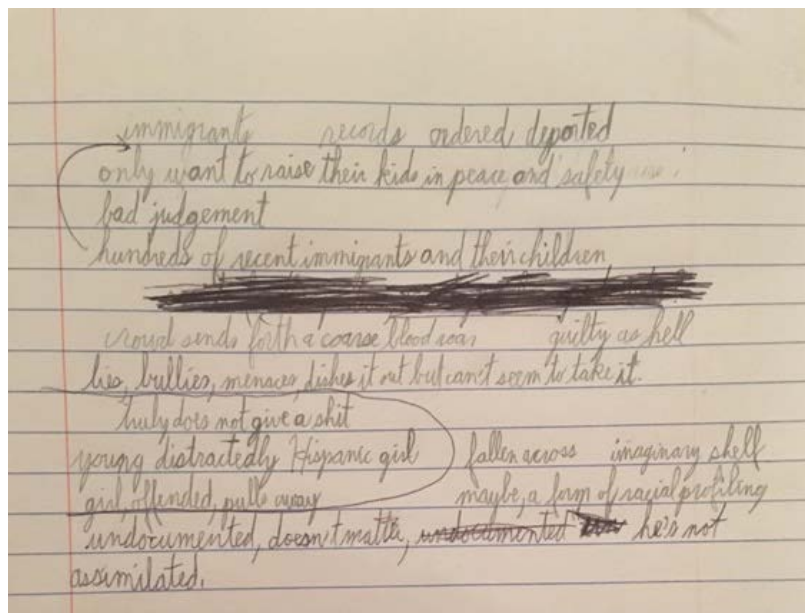 immigrants records ordered deported
only want to raise their kids in peace and safety
bad judgement
hundreds of recent immigrants and their children
crowd sends forth a coarse blood roar guilty as hell
lies, bullies, menaces, dishes it out but can't seem to take it.
truly does not give a shit
young distractedly Hispanic girl fallen across imaginary shelf
girl, offended, pulls away maybe, a form of racial profiling
undocumented, doesn't matter, undocumented he's not
assimilated.